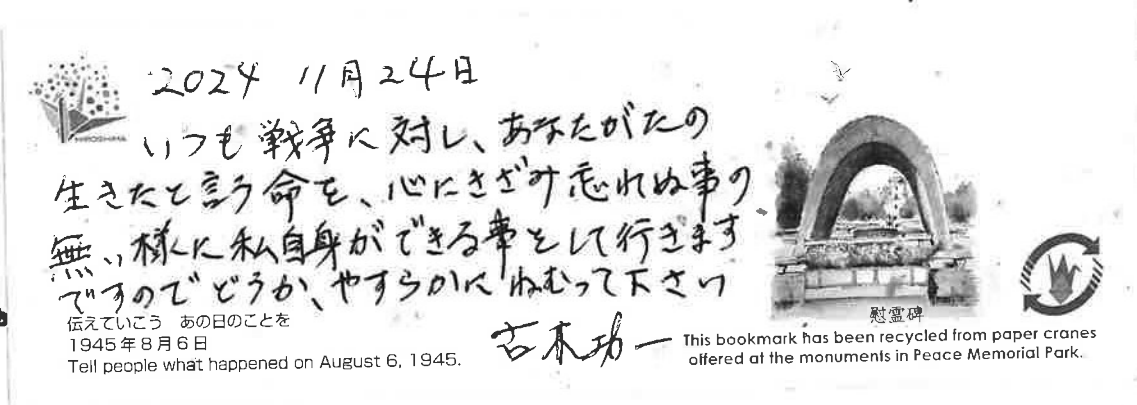 2024 11月24日
いつも戦争に対し、あなたがたの
生きたと言う命を、心にきざみ忘れぬ事の
無い様に私自身ができる事をして行きます
ですのでどうか、やすらかにねむって下さい
古木功一
HIROSHIMA
伝えていこう あの日のことを
1945年8月6日
Tell people what happened on August 6, 1945.
慰霊碑
This bookmark has been recycled from paper cranes
offered at the monuments in Peace Memorial Park.